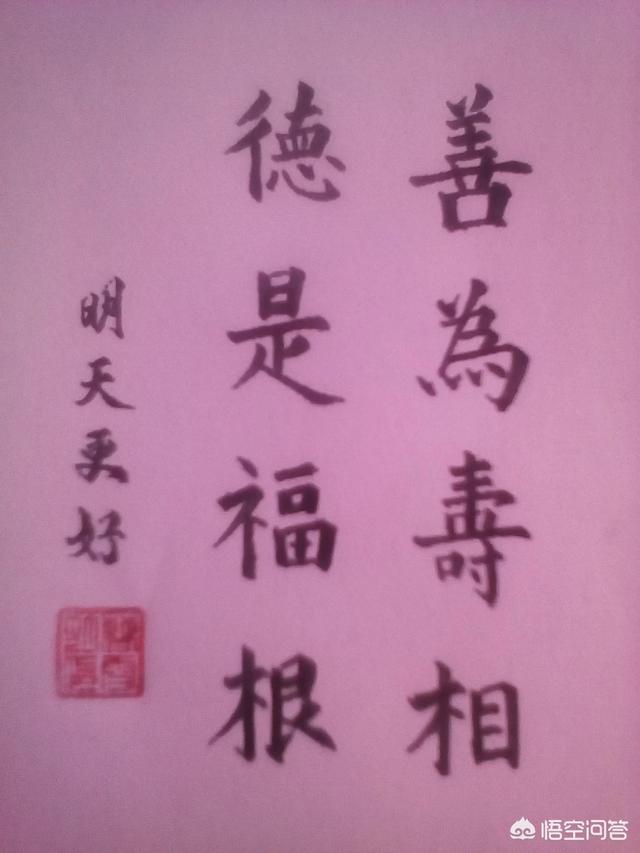 善為壽相
德是福根
明天更好
悟空问答